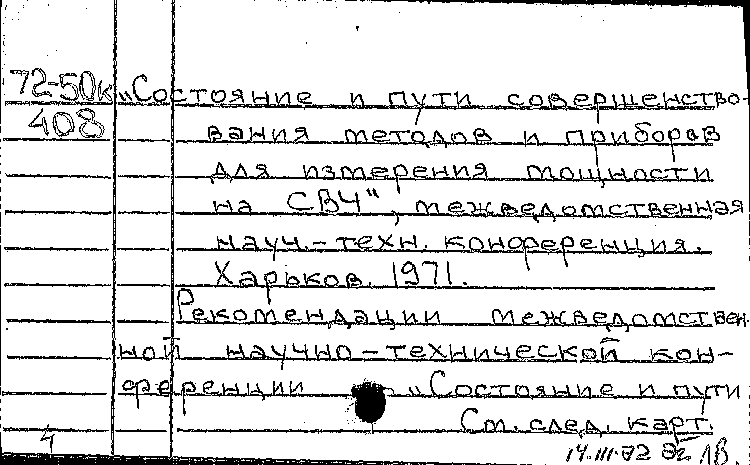 72-50к „Состояние и пути совершенство-
408 вания методов и приборов
для измерения мощности
на СВЧ", межведомственная
науч.-техн. конференция.
Харьков. 1971.
Рекомендации межведомствен-
ной научно-технической кон-
ференции „Состояние и пути
См. след. карт.
4
14.III.72